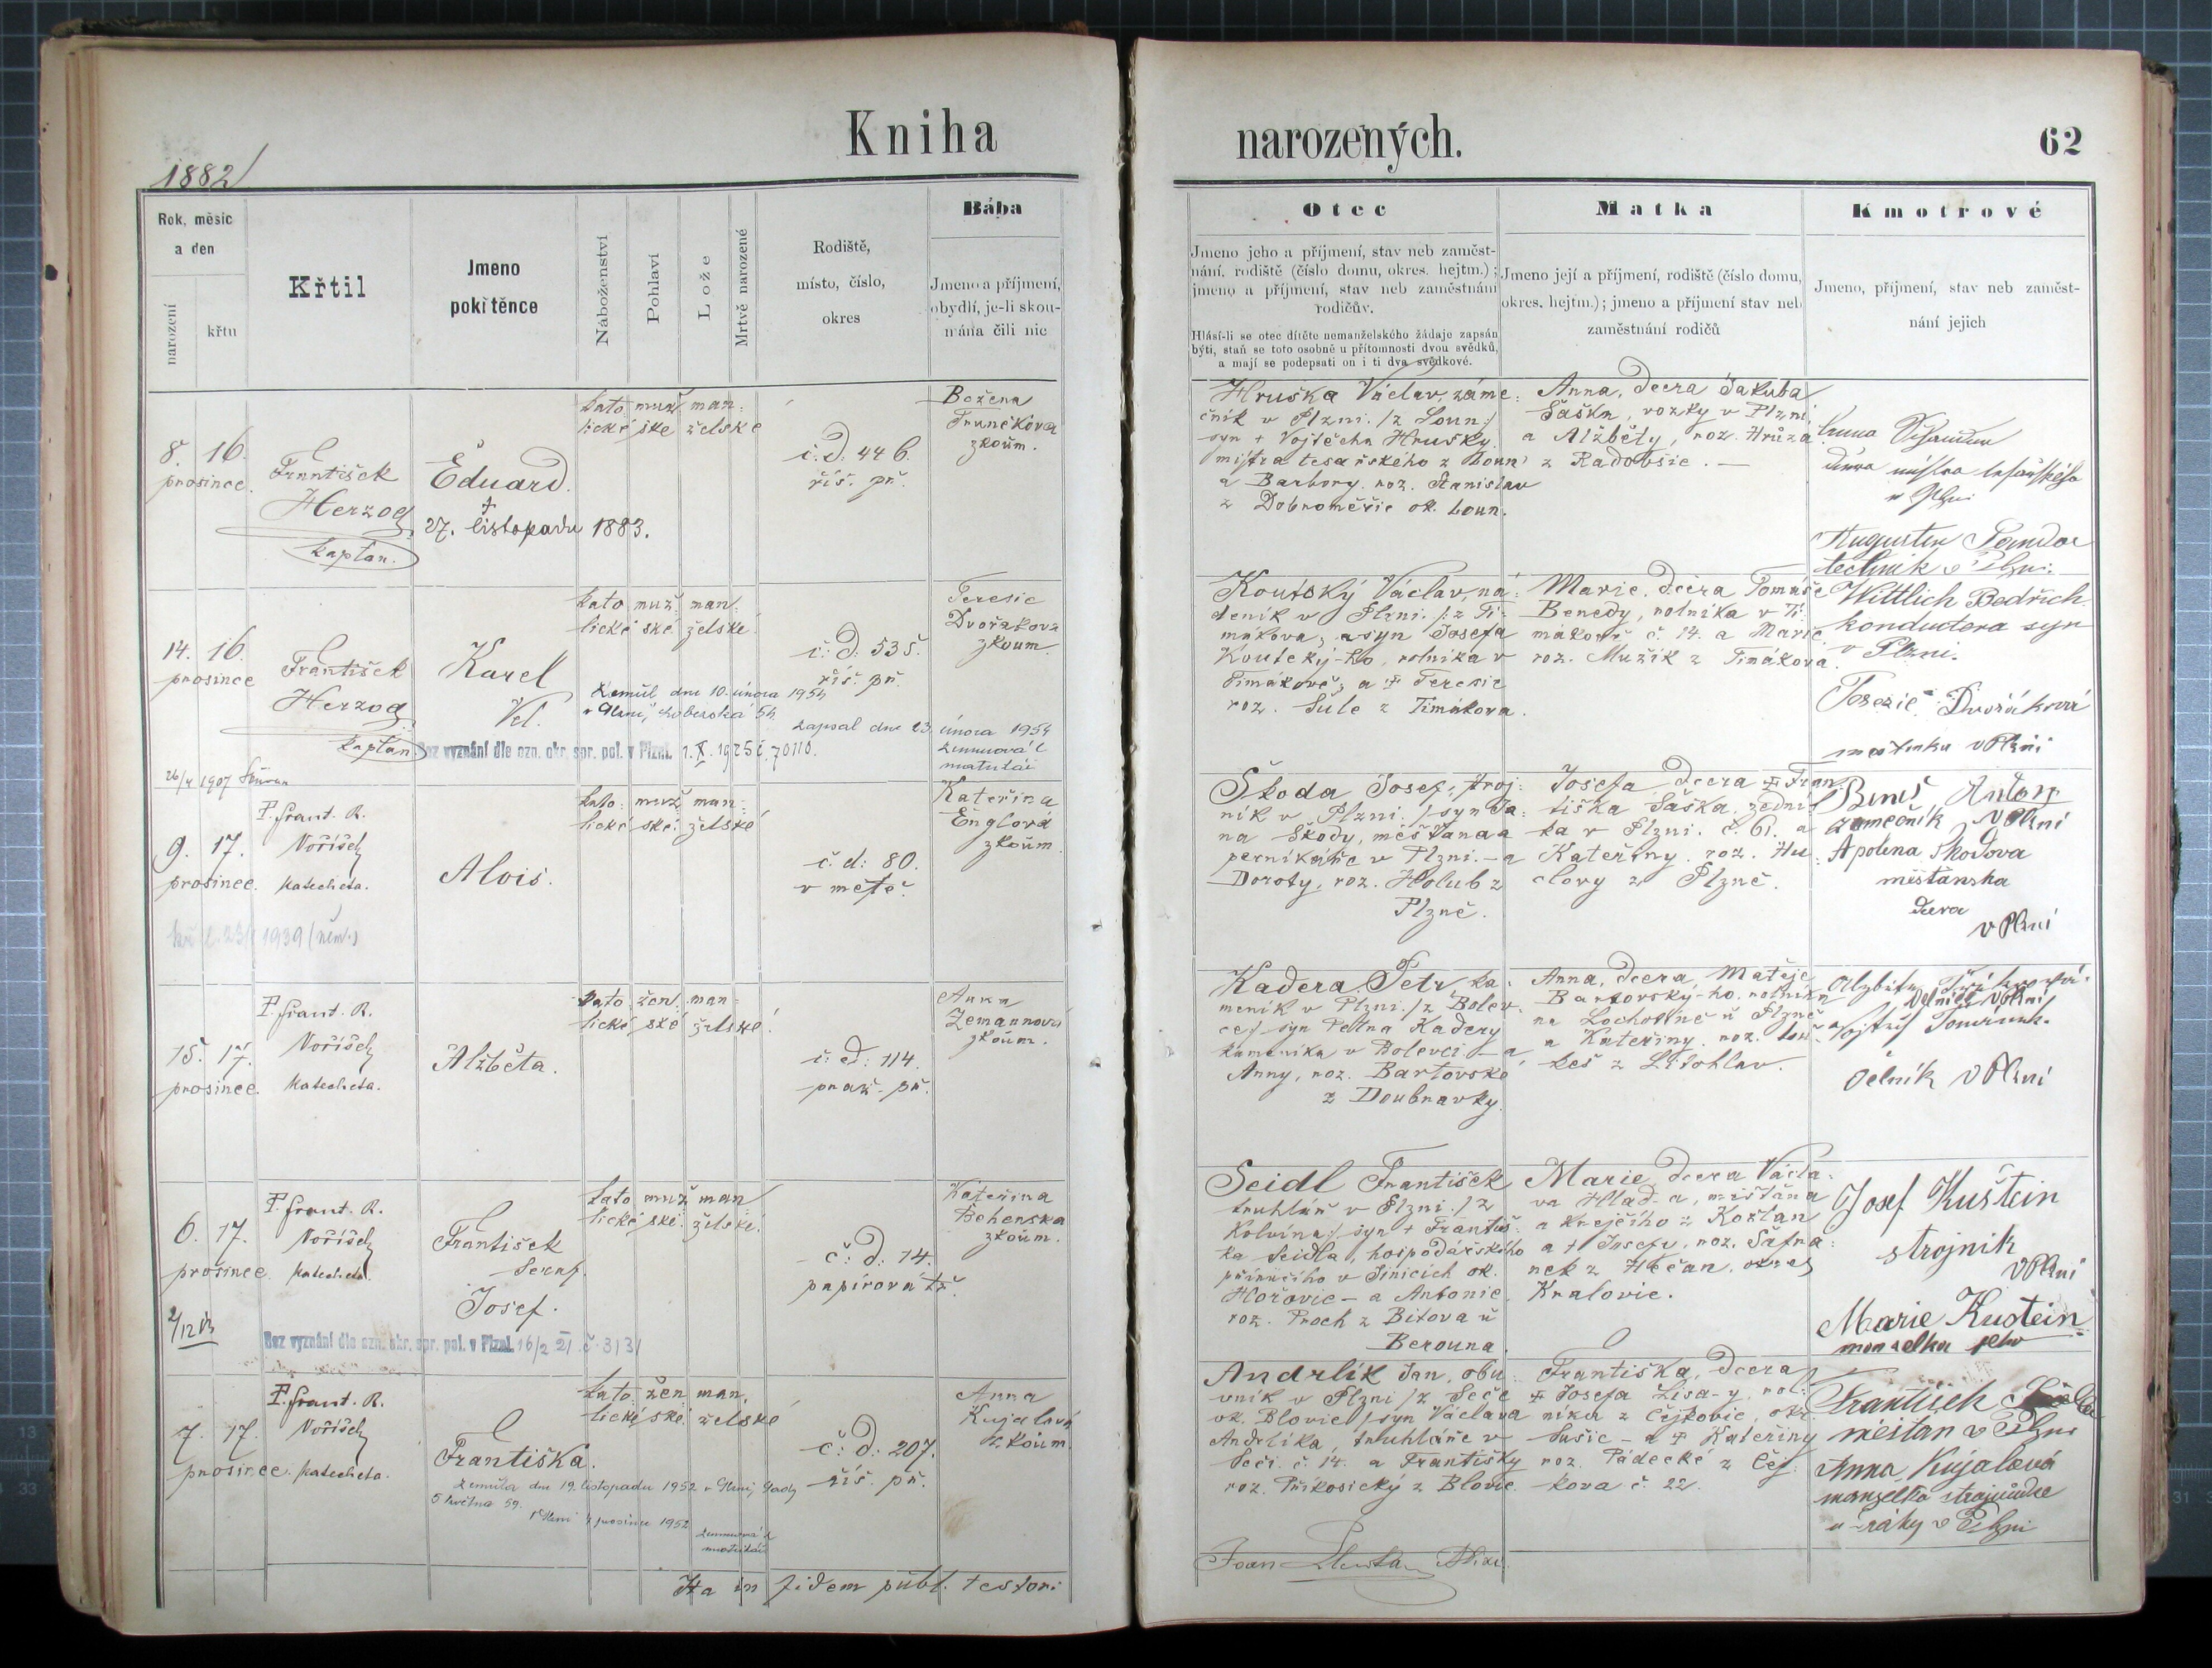 Kniha
narozených.
62
1882
Rok, měsíc
a den
narození
křtu
Křtil
Jmeno
pokřtěnce
Náboženství
Pohlaví
Lože
Mrtvě narozené
Rodiště,
místo, číslo,
okres
Bába
Jmeno a příjmení,
obydlí, je-li skou-
mána čili nic
Otec
Jmeno jeho a příjmení, stav neb zaměst-
nání, rodiště (číslo domu, okres. hejtm.);
jmeno a příjmení, stav neb zaměstnání
rodičův.
Hlásí-li se otec dítěte nemanželského žádaje zapsán
býti, staň se toto osobně u přítomnosti dvou svědků,
a mají se podepsati on i ti dva svědkové.
Matka
Jmeno její a příjmení, rodiště (číslo domu,
okres. hejtm.); jmeno a příjmení stav neb
zaměstnání rodičů
Kmotrové
Jmeno, příjmení, stav neb zaměst-
nání jejich
8. 16.
prosince.
František
Herzog
kaplan.
Eduard.
†
27. listopadu 1883.
kato muž man:
lické ské želské
č. d. 446.
říš. př.
Božena
Trunečkova
zkoum.
Hruška Václav, záme:
čník v Plzni. /z Loun:/
syn + Vojtěcha Hrušky
mistra tesařského z Loun
a Barbory, roz. Stanislav
z Dobroměřic ok. Loun.
Anna, dcera Jakuba
Šaška, vozky v Plzni
a Alžběty, roz. Hrůza
z Radobšic. —
dcera mistra tesařského
v Plzni
Augustin
technik v Plzni.
14. 16.
prosince
František
Herzog
kaplan
Karel
Vel.
Zemřel dne 10. února 1954
v Plzni, Koberská 54
zapsal dne 23. února 1954
Bez vyznání dle ozn. okr. spr. pol. v Plzni. 1. X. 1925 č. 70110.
kato muž man:
lické ské želské
č: d: 535.
říš. př.
Teresie
Dvořakova
zkoum.
Koutský Václav, ná:
deník v Plzni. /: z Ti-
mákova; syn Josefa
Koutský-ho, rolníka v
Timákově; a + Teresie
roz. Šule z Timákova.
Marie, dcera Tomáše
Benedy, rolníka v Ti:
mákově č. 14. a Marie
roz. Mužík z Timákova.
Wittlich Bedřich
konductera syn
v Plzni.
Teresie Dvořáková
v Plzni
26/4 1907
P. Frant. R.
katecheta.
9. 17.
prosince.
Alois.
kato: muž man:
lické ské: želské
č. d: 80.
v městě.
Kateřina
Englová
zkoum.
1939 (něm.)
Škoda Josef, stroj:
ník v Plzni. /syn Ja
na Škody, měšťana a
perníkáře v Plzni. — a
Doroty, roz. Holub z
Plzně.
Josefa dcera + Fran
tiška Šaška, zední
ka v Plzni. č. 61. a
Kateřiny roz. Hu
clovy z Plzně.
Beneš Anton
zámečník v Plzni
Apolena Škodova
měšťanska
dcera
v Plzni
P. Frant. R.
katecheta.
15. 17.
prosince.
Alžběta.
kato žen. man:
lické ské želské.
č: d: 114.
praž. př.
Anna
Zemannová
zkoum.
Kadera Petr, ka:
meník v Plzni. /z Bolev:
ce/ syn Petra Kadery
kameníka v Bolevci — a
Anny, roz. Bartovské
z Doubravky.
Anna, dcera Matěje
Bartovský-ho, rolníka
na Lochotíně u Plzně
a Kateřiny roz. Lou
keš z Litohlav.
Alzběta
dělnice v Plzni
Vojtěch
dělník v Plzni
P. Frant. R.
katecheta.
6. 17.
prosince.
František
Seraf.
Josef.
Bez vyznání dle ozn. okr. spr. pol. v Plzni. 16/2 21 č. 3131
kato muž man
lické ské: želské.
č: d: 14.
papírova tř.
Kateřina
Bohenska
zkoum.
Seidl František
truhlář v Plzni. /z
Kolvína/ syn + Františ:
ka Seidla, hospodářského
v Jinicích ok.
Hořovic — a Antonie,
roz. Proch z Bitova u
Berouna.
Marie dcera Václa:
va Hlad-a, měšťana
a krejčího z Kožlan
a + Josefy, roz. Šafra:
nek z Hečan, okres
Kralovic.
Josef Kuštein
strojník
v Plzni
Marie Kustein
manzelka jeho
P. Frant. R.
katecheta.
7. 17.
prosince.
Františka.
Zemřela dne 19. listopadu 1952 v Plzni, Sady
5 května 59.
V Plzni prosince 1952
kato žen man.
lické ské: želské
č: d: 207.
říš. př.
Anna
Kujalová
zkoum.
Andrlík Jan, obu:
vník v Plzni /z Seče
ok. Blovic/ syn Václava
Andrlíka, truhláře v
Seči č. 14. a Františky
roz. Příkosický z Blovic
Františka, dcera
+ Josefa Lisa-y, rol:
níka z Čejkovic, okr.
Sušic — a + Kateřiny
roz. Pádecké z Čej:
kova č. 22.
František
měšťan v Plzni
Anna Kujalová
manželka
v Plzni
Ita in fidem publ. testor: